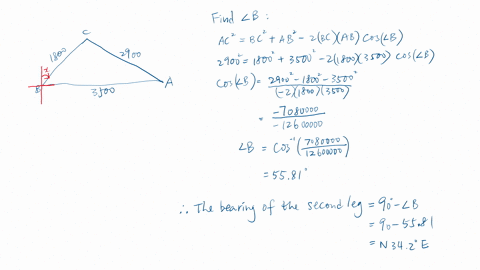 Find ∠B :
AC² = BC² + AB² - 2(BC)(AB) Cos(∠B)
2900² = 1800² + 3500² - 2(1800)(3500) Cos(∠B)
Cos(∠B) = (2900² - 1800² - 3500²) / ((-2)(1800)(3500))
= -7080000 / -12600000
∠B = Cos⁻¹(7080000 / 12600000)
= 55.81°
∴ The bearing of the second leg = 90° - ∠B
= 90 - 55.81
= N 34.2° E
C
1800
2900
B
A
3500